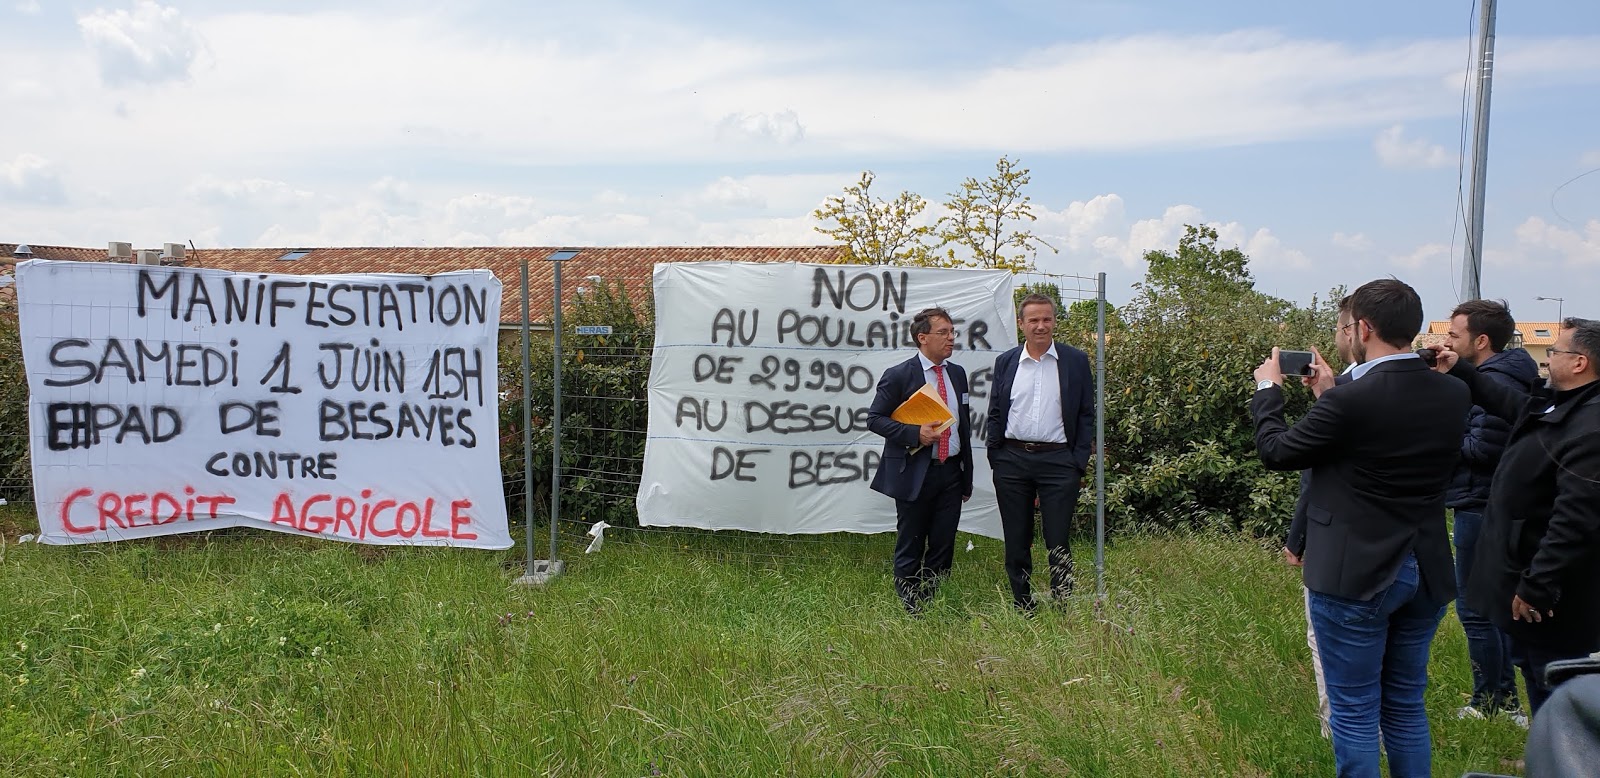 MANiFESTATION
SAMEDi 1 JUiN 15H
EHPAD DE BESAYES
CONTRE
CREDiT AGRiCOLE
HERAS
NON
AU POULAiLLER
DE 29990
AU DESSUS
DE